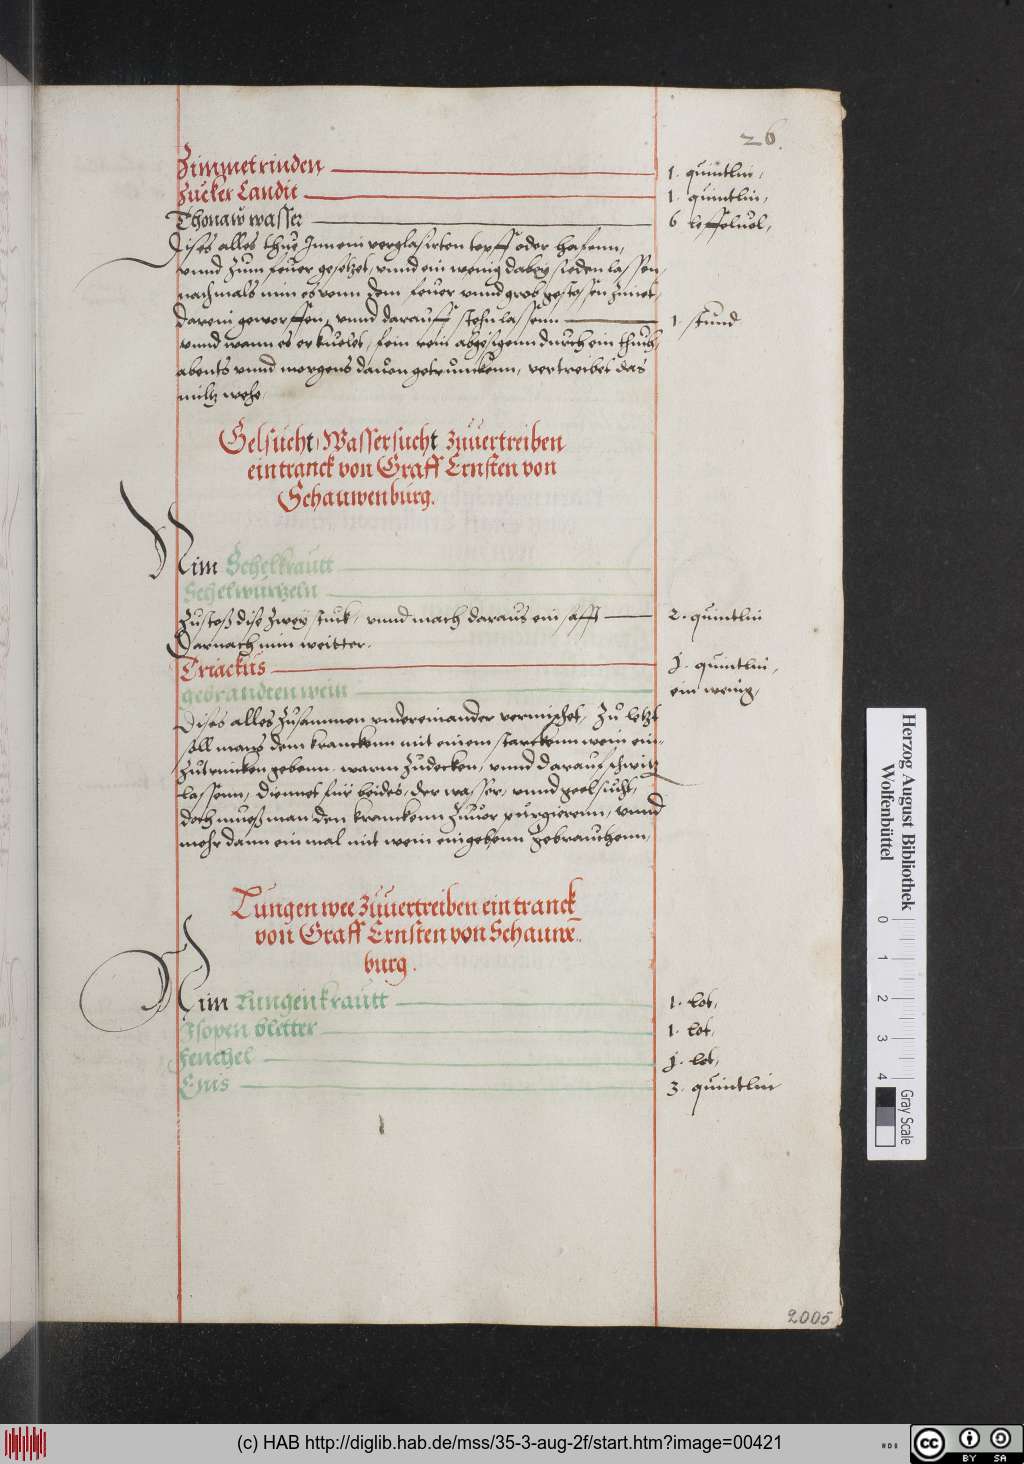 26.
Zimmetrinden 1. quintlin,
Zucker Candit 1. quintlin,
Thonaw wasser 6 leffeluol,
Dises alles thue Innein verglasirten topff oder hafenn,
vnnd zum feuer gesetzet, vnnd ein wenig dabey sieden lassen,
nachmals nim es vonn dem feuer vnnd grob gestossen Zimet,
darein geworffen, vnnd darauff stehn lassenn 1. stund
vnnd wann es erkuelet, fein rein abgesigenn durch ein thuch,
abents vnnd morgens dauon getrunckenn, vertreibet das
miltz wehe,
Gelsucht, Wassersucht zuuertreiben
ein tranck von Graff Ernsten von
Schauwenburg.
Nim Schelkrautt
Schelwurtzeln
Zustoß dise zwey stuck, vnnd mach daraus ein safft 2. quintlin
Darnach nim weitter.
Triackus j. quintlin,
gebrandten wein ein wenig,
Dises alles zusammen vndereinander vermischet, Zu letzt
soll mans dem kranckenn mit einem starckenn wein ein-
zutrincken gebenn, warm zudecken, vnnd darauf schwitz
lassenn, diennet für beides, der wasser, vnnd geelsucht,
doch mueß man den kranckenn zuuor purgierenn, vnnd
mehr dann ein mal mit wein eingebenn gebrauchenn,
Lungen wee zuuertreiben ein tranck
von Graff Ernsten von Schauwe-
burg.
Nim Lungenkrautt 1. lot,
Isopen bletter 1. lot,
Fenchel j. lot,
Enis 3. quintlin
2005
Herzog August Bibliothek
Wolfenbüttel
0 1 2 3 4
Gray Scale
(c) HAB http://diglib.hab.de/mss/35-3-aug-2f/start.htm?image=00421
cc BY SA